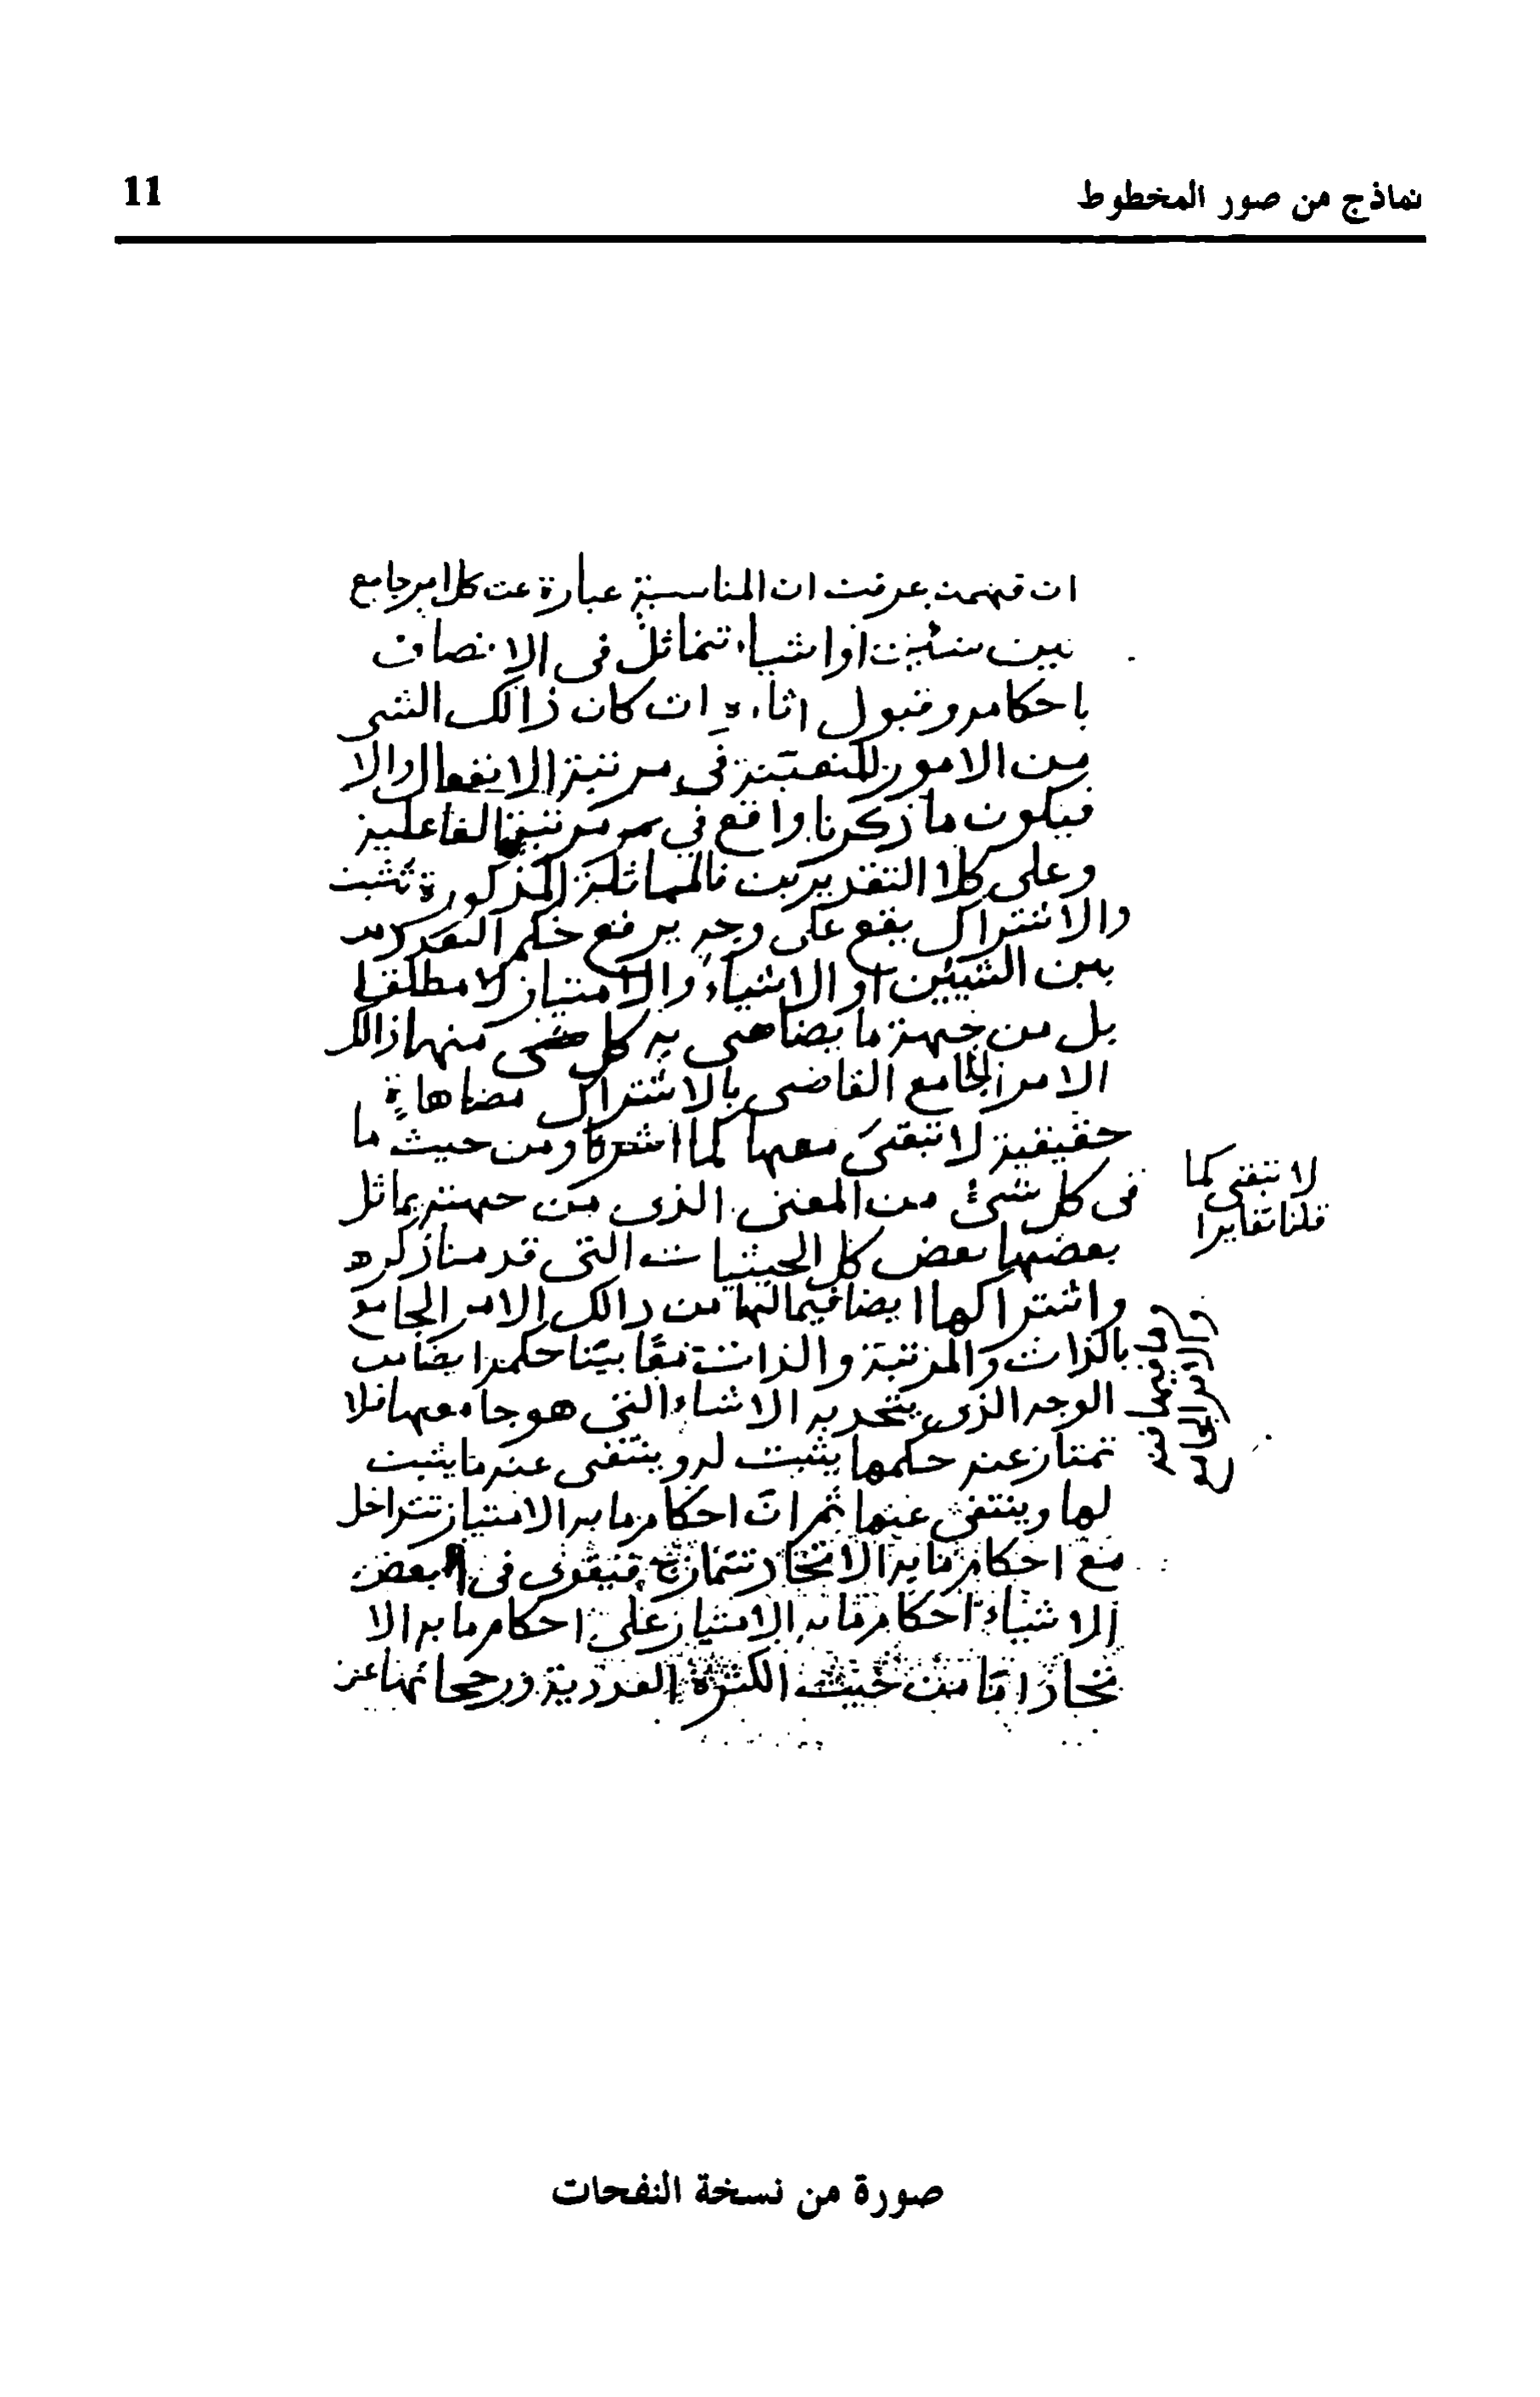 نماذج من صور المخطوط
11
ان فهمت عرفت ان المناسبة عبارة عن كل امر جامع
بين شيئين او اشياء تتماثل فى الاتصاف
باحكامه وقبول اثاره ان كان ذالك الشى
من الامور فى مرتبة الانفعال والا
فيكون ما ذكرنا واقع فى مرتبة الفاعلية
وعلى كلا التقديرين فالمماثلة المذكورة تثبت
والاشتراك يقع على وجه يرفع حكم التعدد
بين الشيئين او الاشياء والامتياز لا مطلقا
بل من جهة ما يضاهى به كل منها ذالك
الامر الجامع القاضى بالاشتراك مضاهاة
حقيقية لا تبقى معها كما اشرنا ومن حيث ما
فى كل شىء من المعنى الذى من جهته يماثل
بعضها بعض كل الحيثيات التى قدمنا ذكره
واشتراكها ايضا فيمالها من ذالك الامر الجامع
بالذات والمرتبة والذات حكمه ايضا من
الوجه الذى يتحد به الاشياء التى هو جامعها فلا
تمتاز عنه حكمها يثبت له وينتفى عنه ما يثبت
لها وينتفى عنها ثم ان احكام ما به الامتياز تتداخل
مع احكام ما به الاتحاد وتتمازج فيقوى فى بعض
الاشياء احكام ما به الامتياز على احكام ما به الا
تحاد اما من حيث الكثرة العددية ورجحانها عن
لا تبقى كما
قلنا تغايرا
صورة من نسخة النفحات